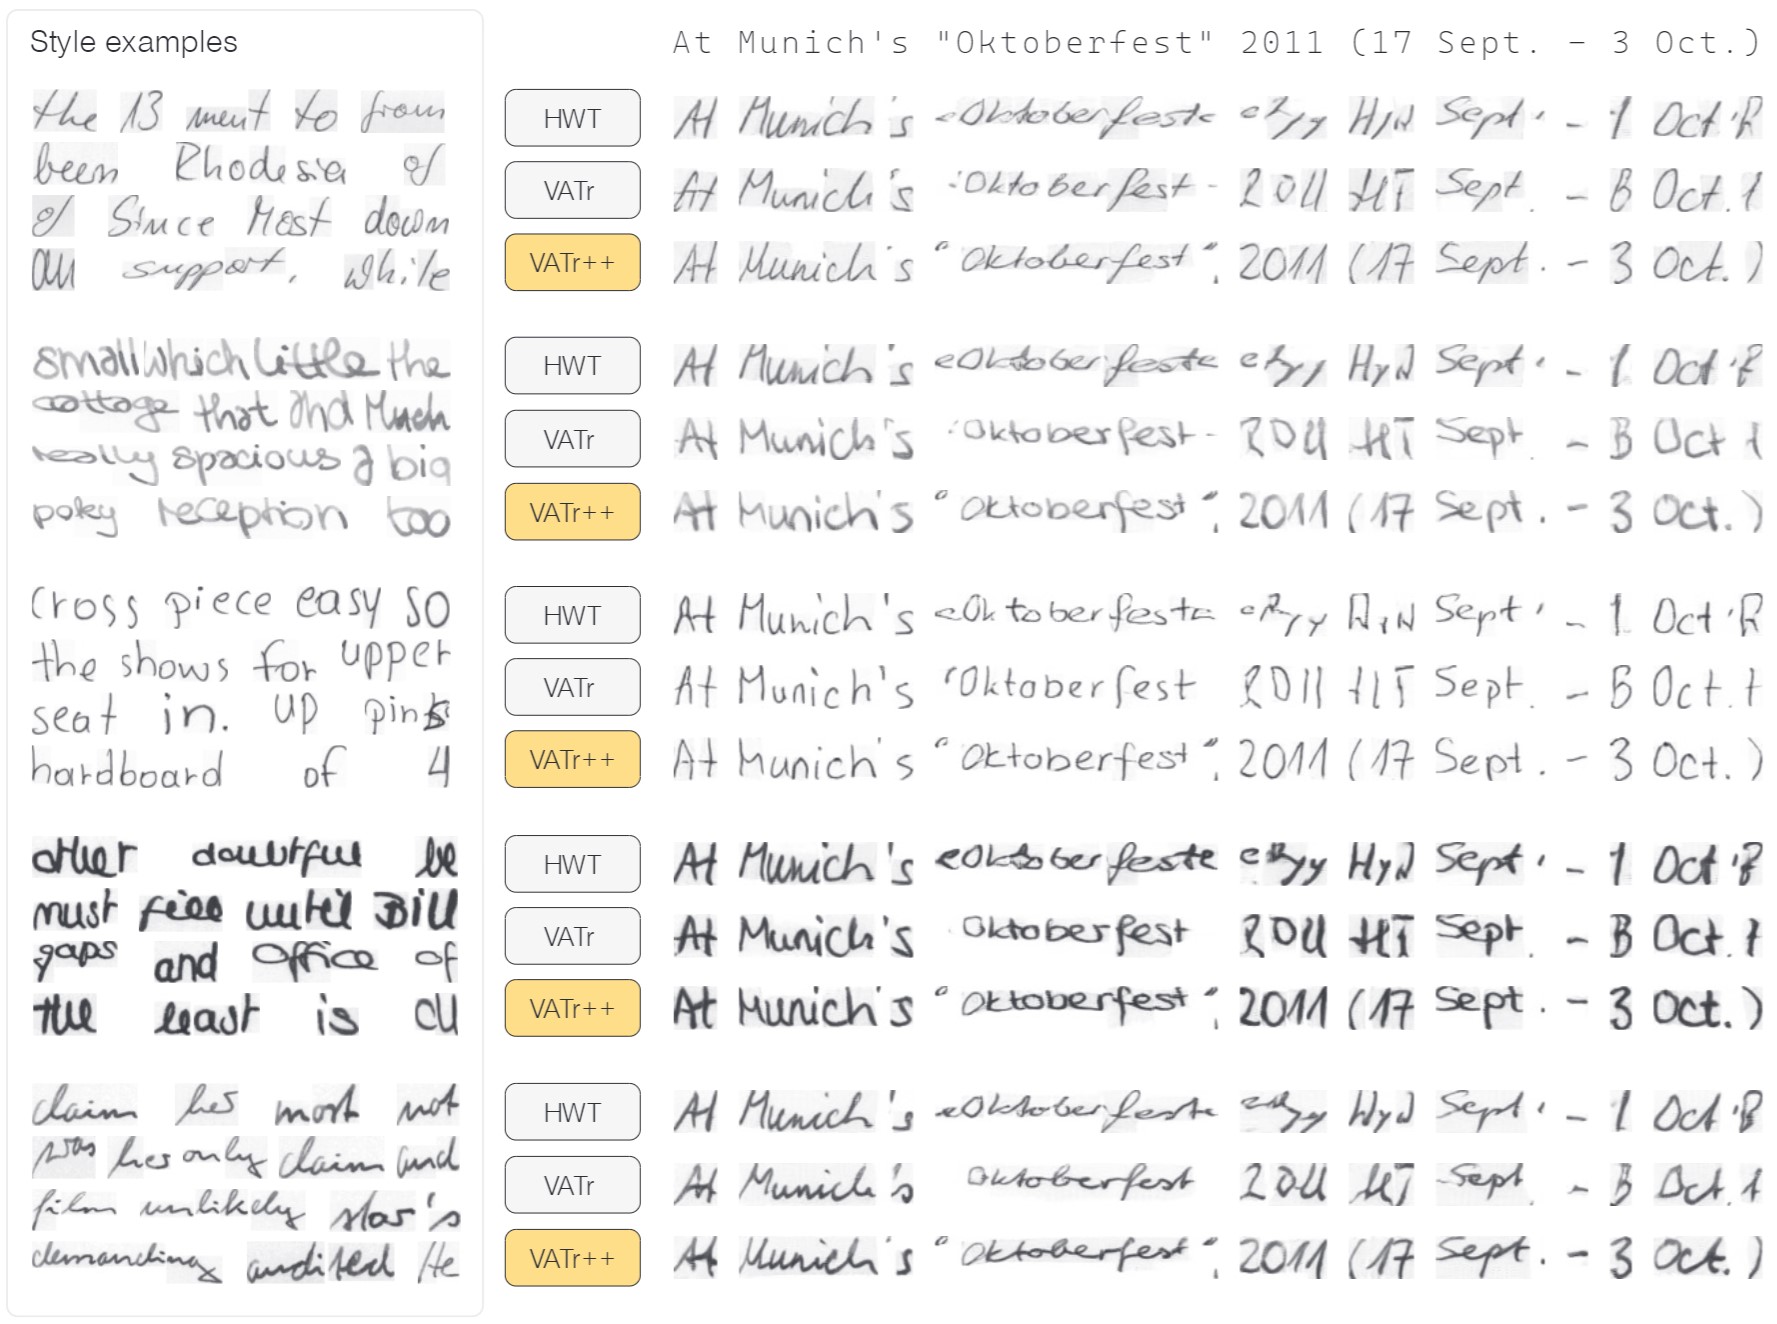 Style examples
At Munich's "Oktoberfest" 2011 (17 Sept. – 3 Oct.)
the 13 ment to from
been Rhodesia of
of Since Most down
an support, while
HWT
At Munich's eOktoberfeste Sept ' - 1 Oct
VATr
At Munich's Oktoberfest - 2011 HT Sept. - B Oct. t
VATr++
At Munich's "Oktoberfest", 2011 (17 Sept. - 3 Oct.)
small which little the
cottage that and Much
really spacious & big
poky reception too
HWT
At Munich's eOktoberfeste Sept ' - 1 Oct
VATr
At Munich's Oktoberfest - 2011 HT Sept - B Oct t
VATr++
At Munich's "Oktoberfest", 2011 (17 Sept. - 3 Oct.)
Cross piece easy SO
the shows for upper
seat in. up pins
hardboard of 4
HWT
At Munich's eOktoberfeste Sept ' - 1 Oct
VATr
At Munich's 'Oktoberfest 2011 HT Sept. - B Oct. t
VATr++
At Munich's "Oktoberfest", 2011 (17 Sept. - 3 Oct.)
other doubtful be
must free until Bill
gaps and Office of
the least is all
HWT
At Munich's eOktoberfeste Sept ' - 1 Oct
VATr
At Munich's Oktoberfest 2011 HT Sept. - B Oct. t
VATr++
At Munich's "Oktoberfest", 2011 (17 Sept. - 3 Oct.)
claim her most not
was her only claim and
film unlikely star's
demanding audited He
HWT
At Munich's eOktoberfeste Sept ' - 1 Oct
VATr
At Munich's Oktoberfest 2011 HT Sept. - B Oct. t
VATr++
At Munich's "Oktoberfest", 2011 (17 Sept. - 3 Oct.)